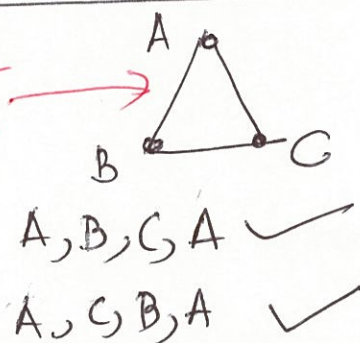 A
B
C
A, B, C, A ✓
A, C, B, A ✓